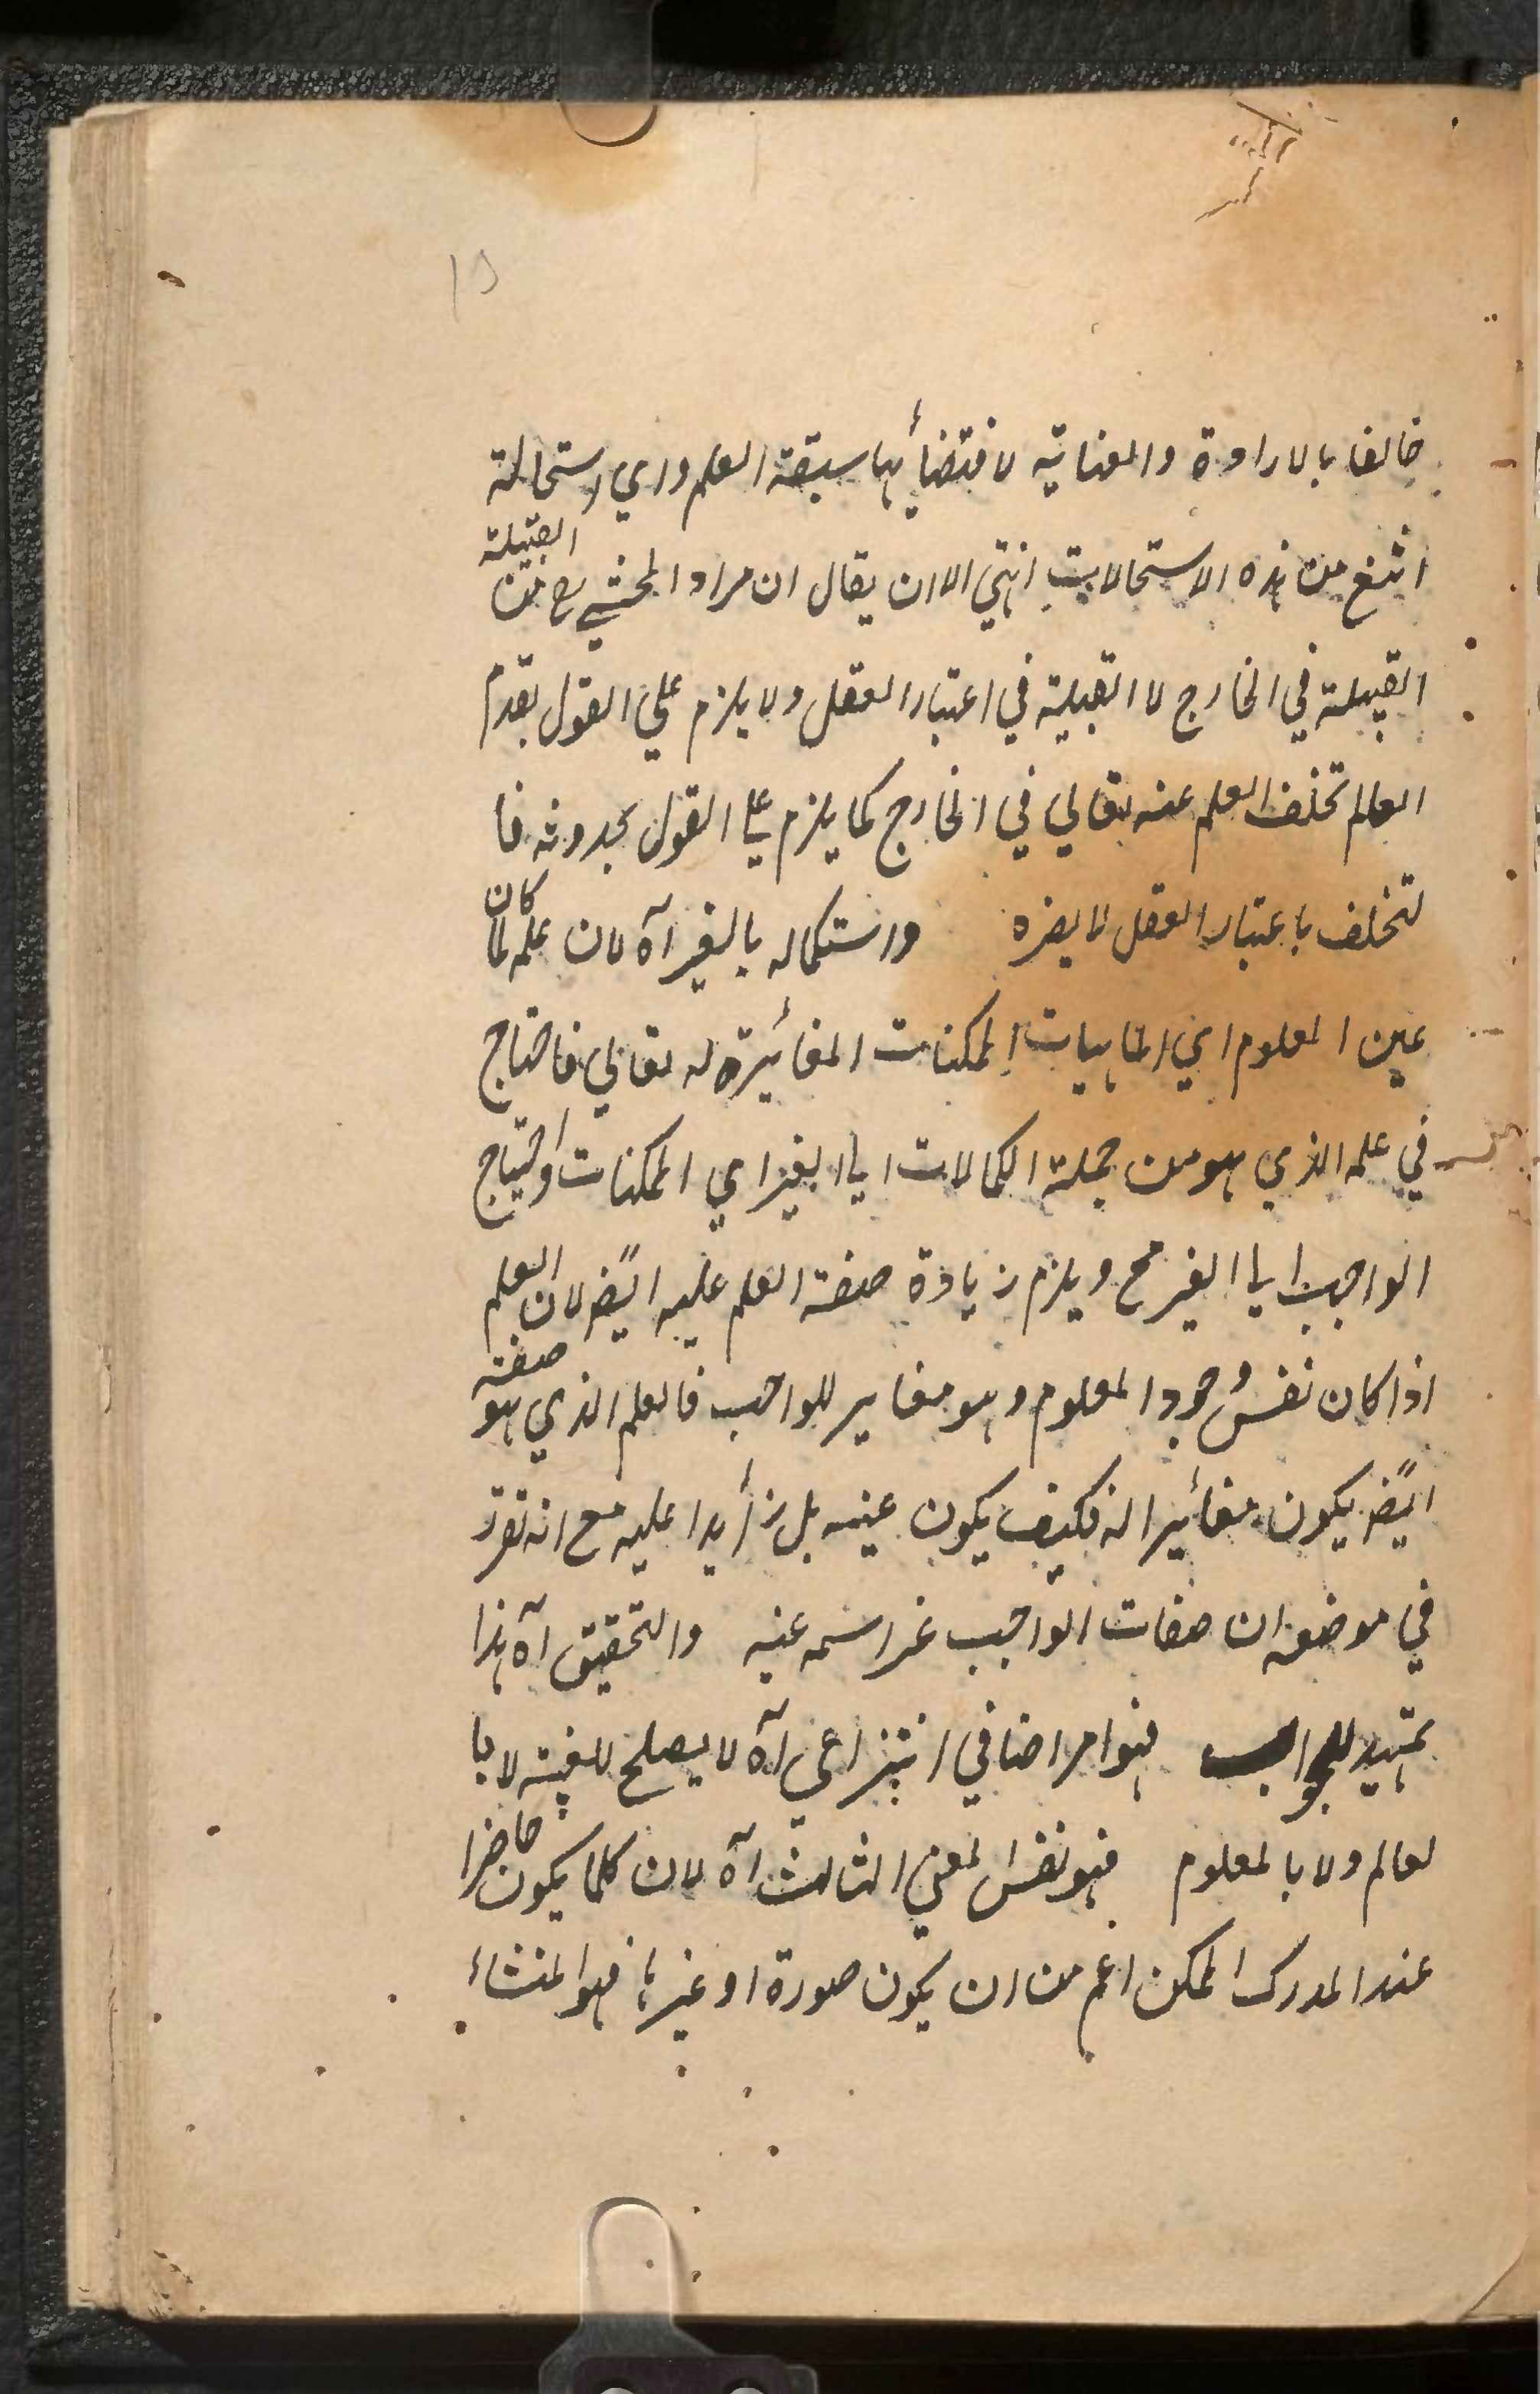 خالقا بالارادة والعناية لاقتضائها سبقة العلم واي استحالة
اشنع من هذه الاستحالات انتهي الا ان يقال ان مراد المحشي رح من القبيلة
القبيلة في الخارج لا القبلية في اعتبار العقل ولا يلزم علي القول بقدم
العالم تخلف العلم عنه تعالي في الخارج كما يلزم علي القول بحدوثه فا
لتخلف باعتبار العقل لا يضره واستكماله بالغير آه لان علمه لما كان
عين المعلوم اي الماهيات الممكنات المغائيرة له تعالي فاحتاج
في علمه الذي هو من جملة الكمالات الي الغير اي الممكنات واحتياج
الواجب الي الغير مح ويلزم زيادة صفة العلم عليه ايضً لان العلم
اذا كان نفس وجود المعلوم وهو مغاير للواجب فالعلم الذي هو صفة
ايضً يكون مغائيرا له فكيف يكون عينه بل زائدا عليه مع انه تقرر
في موضعه ان صفات الواجب عز اسمه عينه والتحقيق آه هذا
تمهيد للجواب فهو امر اضافي انتزاعي آه لا يصلح للعينية لا با
لعالم ولا بالمعلوم فهو نفس المعني الثالث آه لان كلما يكون حاضرا
عند المدرك الممكن اعم من ان يكون صورة او غيرها فهو المنشاء